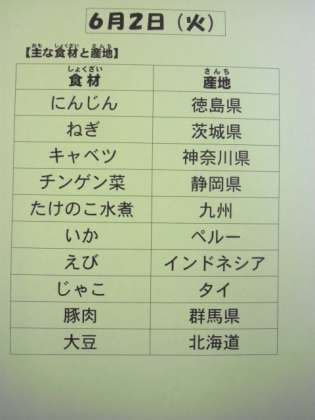 6月2日（火）
【主な食材と産地】
食材 産地
にんじん 徳島県
ねぎ 茨城県
キャベツ 神奈川県
チンゲン菜 静岡県
たけのこ水煮 九州
いか ペルー
えび インドネシア
じゃこ タイ
豚肉 群馬県
大豆 北海道